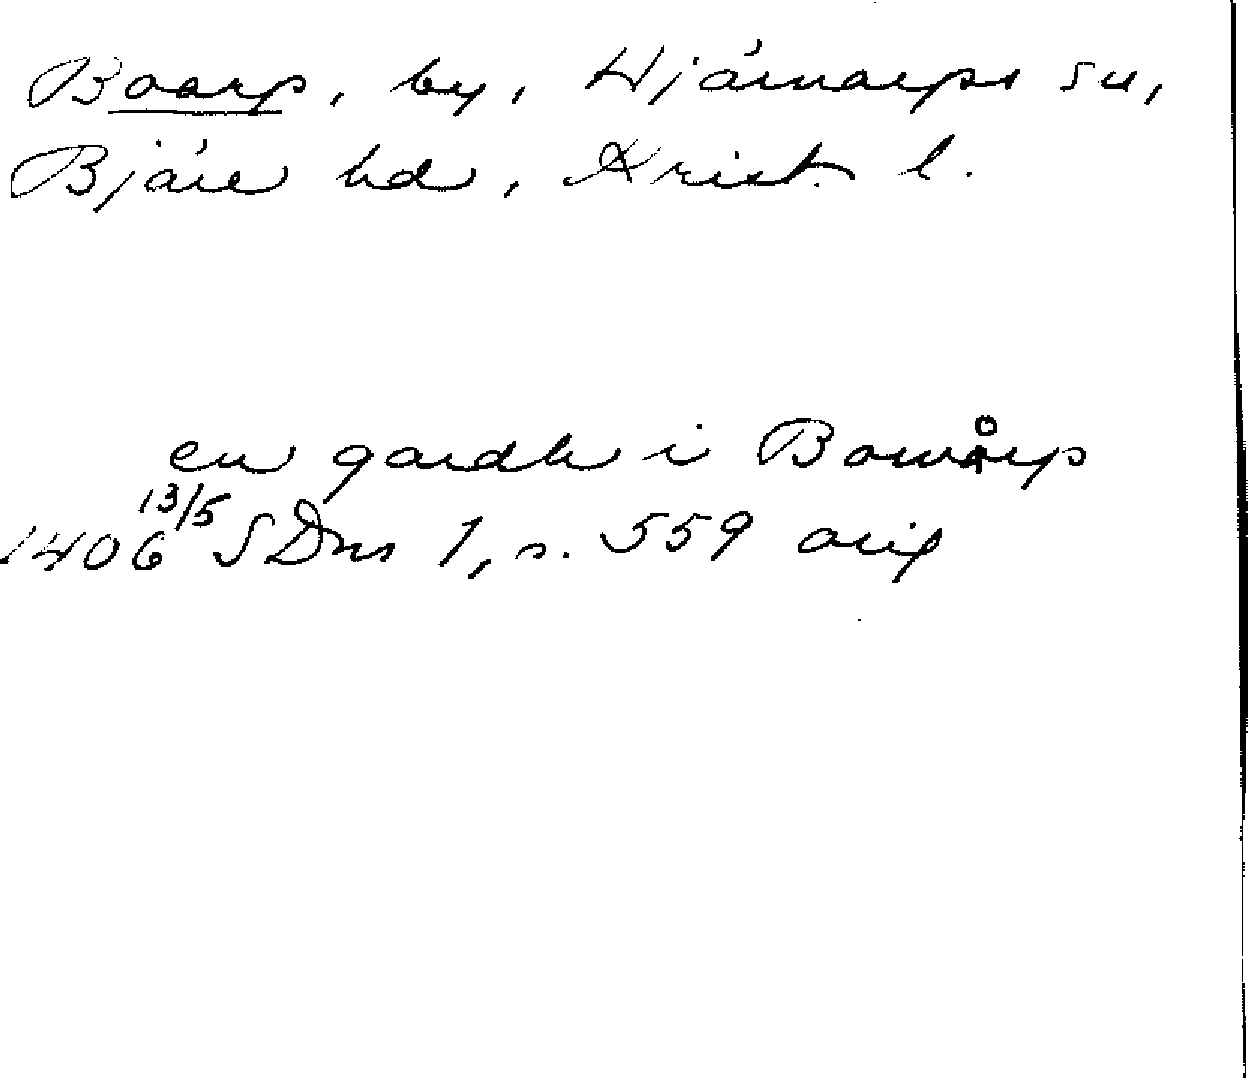 Boarp, by, Hjärnarps sn,
Bjäre hd, Krist. l.
en gardh i Bowårp
1406 13/5 SDns 1, s. 559 orig